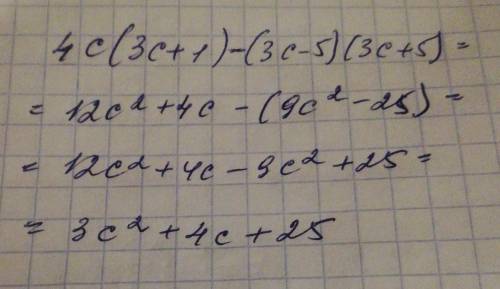 4c(3c+1)-(3c-5)(3c+5)=
= 12c²+4c-(9c²-25)=
= 12c²+4c-9c²+25=
= 3c²+4c+25